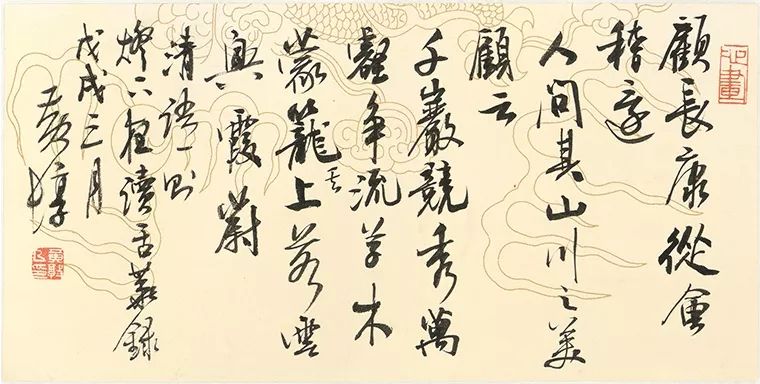 顧長康從會
稽還
人問其山川之美
顧云
千巖競秀萬
壑争流草木
蒙籠其上若雲
興霞蔚
清語一則
燈下讀舌華錄
戊戌三月
黄惇